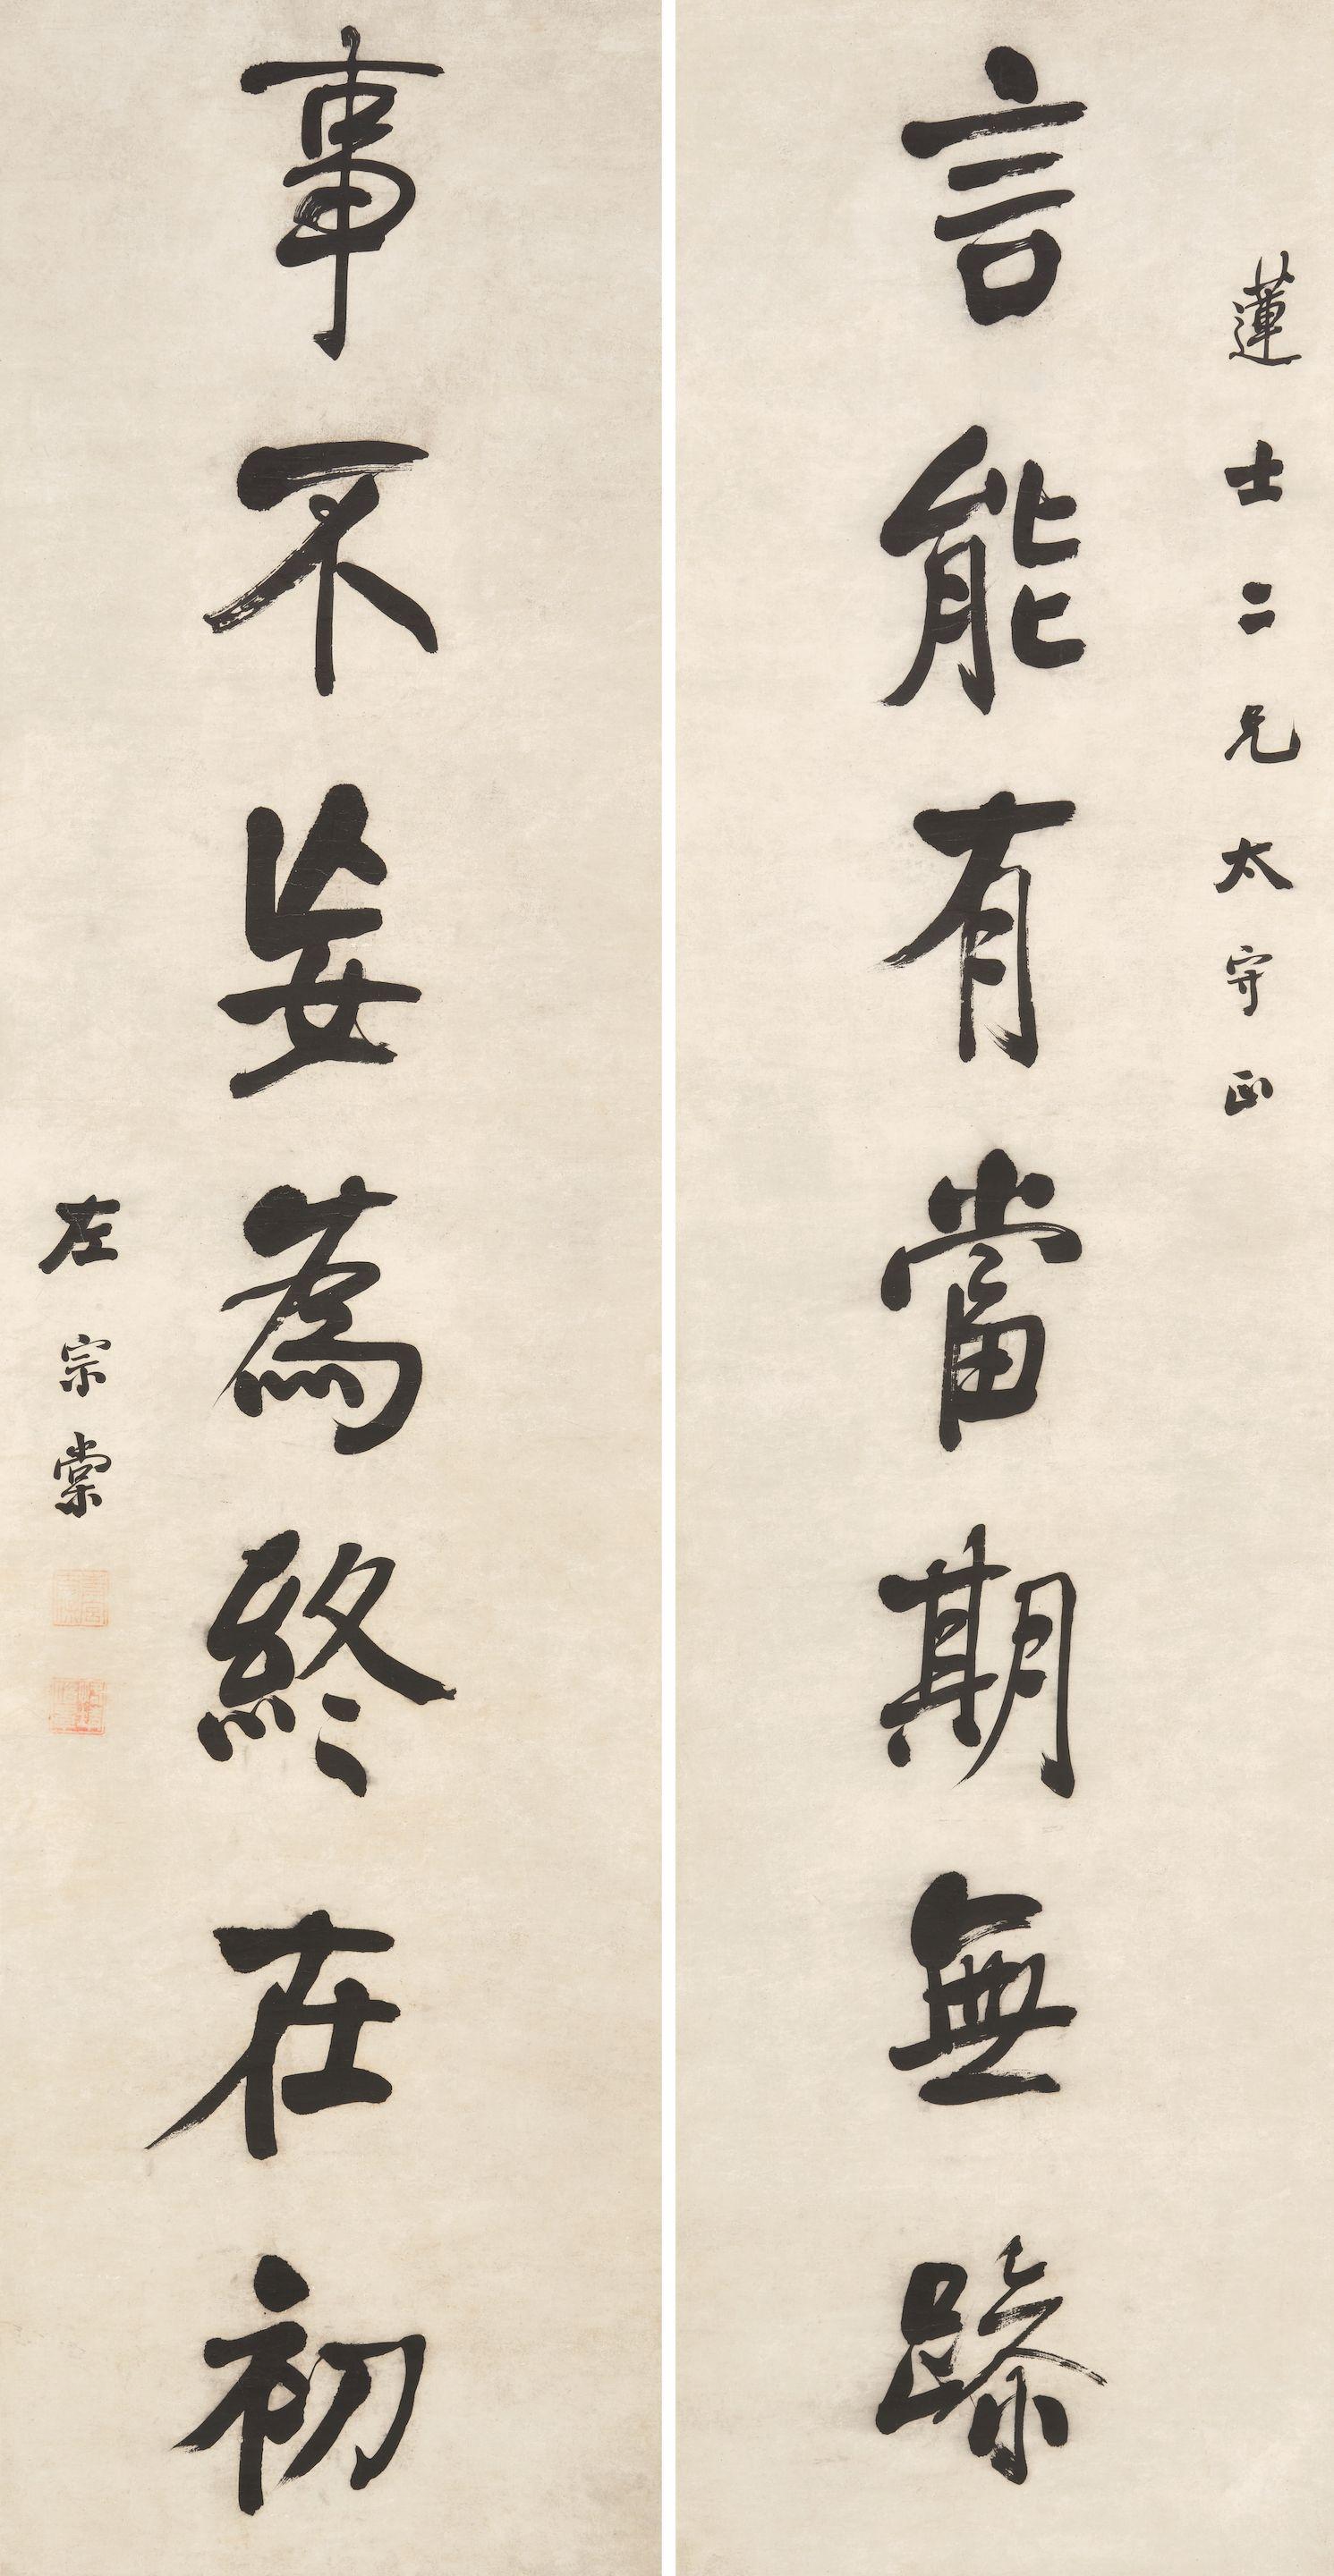 蓮士二兄太守正
言能有當期無躁
事不妄為終在初
左宗棠